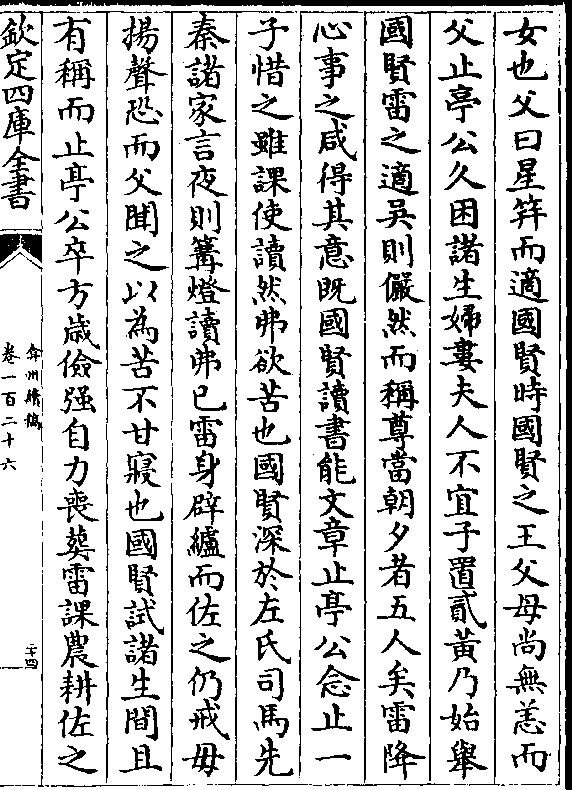 女也父曰星笄而適國賢時國賢之王父母尚無恙而
父止亭公久困諸生婦婁夫人不宜子置貳黃乃始舉
國賢雷之適吳則儼然而稱尊當朝夕者五人矣雷降
心事之咸得其意既國賢讀書能文章止亭公念止一
子惜之雖課使讀然弗欲苦也國賢深於左氏司馬先
秦諸家言夜則篝燈讀弗已雷身辟纑而佐之仍戒毋
揚聲恐而父聞之以為苦不甘寢也國賢試諸生間且
有稱而止亭公卒方歲儉强自力喪葬雷課農耕佐之
欽定四庫全書
弇州續稿
卷一百二十六
二十四